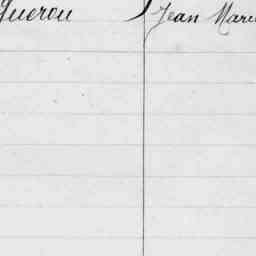 Guerou Jean Marie